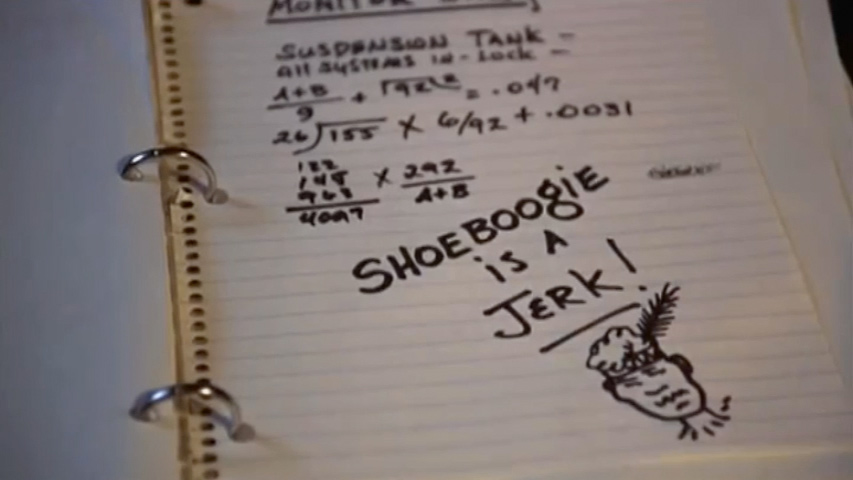 MONITOR
SUSPENSION TANK -
All SYSTEMS IN-LOCK -
A+B
9
+ √92
= .047
26)155 × 6/92 + .0031
122
148
963
4097
× 292
A+B
SHOEBOOGiE
iS A
JERK!